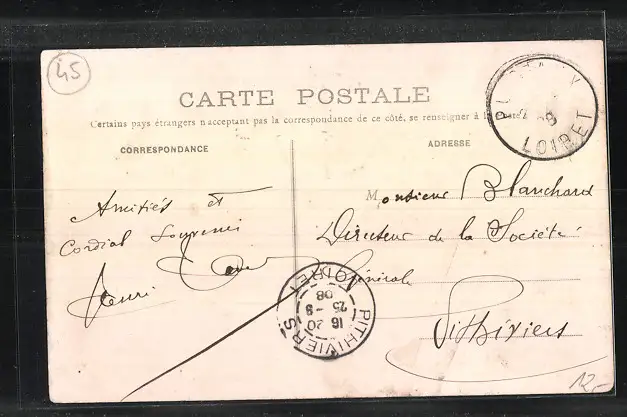 45
CARTE POSTALE
Certains pays étrangers n'acceptant pas la correspondance de ce côté, se renseigner à la
CORRESPONDANCE
ADRESSE
Amitiés et
Cordial Souvenir
Henri
Monsieur Blanchard
Directeur de la Société
Générale
Pithiviers
LOIRET
PITHIVIERS
LOIRET
16 20
25 - 8
08
12,-